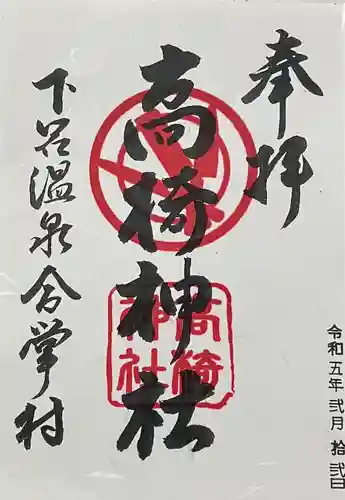 奉拝
高椅神社
高椅神社
下呂温泉合掌村
令和五年弐月拾弐日